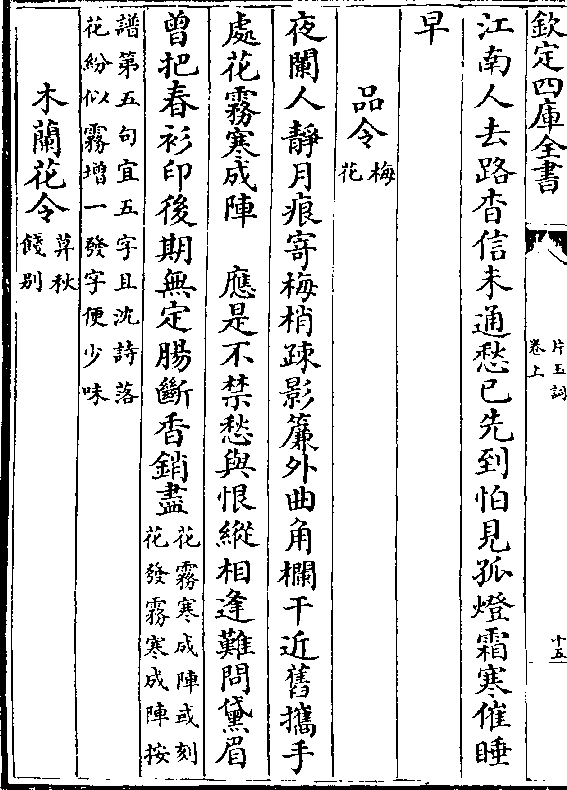 欽定四庫全書
片玉詞
卷上
十五
江南人去路杳信未通愁已先到怕見孤燈霜寒催睡
早
品令梅花
夜闌人靜月痕寄梅梢疎影簾外曲角欄干近舊攜手
處花霧寒成陣　應是不禁愁與恨縱相逢難問黛眉
曾把春衫印後期無定腸斷香銷盡花霧寒成陣或刻花發霧寒成陣按
譜第五句宜五字且沈詩落花紛似霧增一發字便少味
木蘭花令莫秋餞別